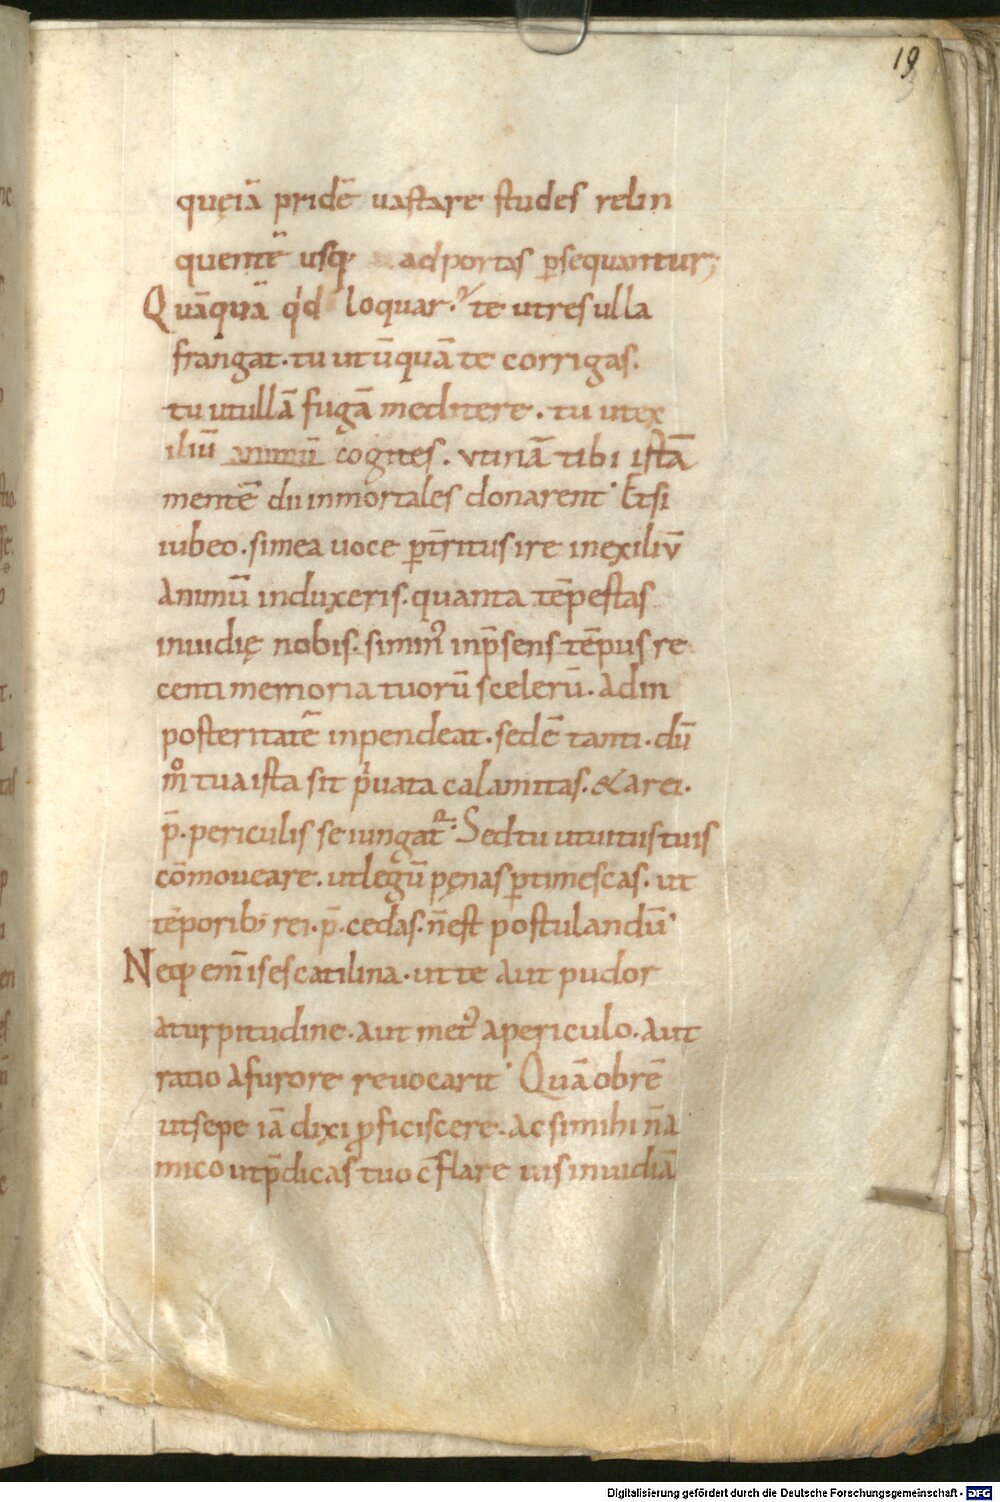 19
quęiā pridē uastare studes relin
quentē usq; ad portas p̄sequantur;
Quāquā q̇d loquar? te utres ulla
frangat. tu ut ūquā te corrigas.
tu utullā fugā meditere. tu utex
iliū animū cogites. vtinā tibi istā
mentē dii inmortales donarent. Etsi
iubeo. simea uoce p̄t̄ritus ire inexiliv̄
animū induxeris. quanta tēpestas
inuidię nobis. simin' inp̄sens tēpus re
centi memoria tuorū scelerū. adin
posteritatē inpendeat. sedē tanti. dū
m̊ tua ista sit p̍uata calamitas. & a rei.
p̄. periculis se iungat᷑. Sedtu utuitiis tuis
cōmoueare. utlegū pęnas p̄timescas. ut
tēporib; rei. p̄. cedas. n̄est postulandū.
Neq; eni̅ is es catilina. ut te aut pudor
aturpitudine. aut met' apericulo. aut
ratio afurore reuocarit. Quā obrē
utsepe iā dixi ꝓficiscere. ac simihi in̄a
mico utp̄dicas tuo c̄flare uis inuidiā
Digitalisierung gefördert durch die Deutsche Forschungsgemeinschaft - DFG